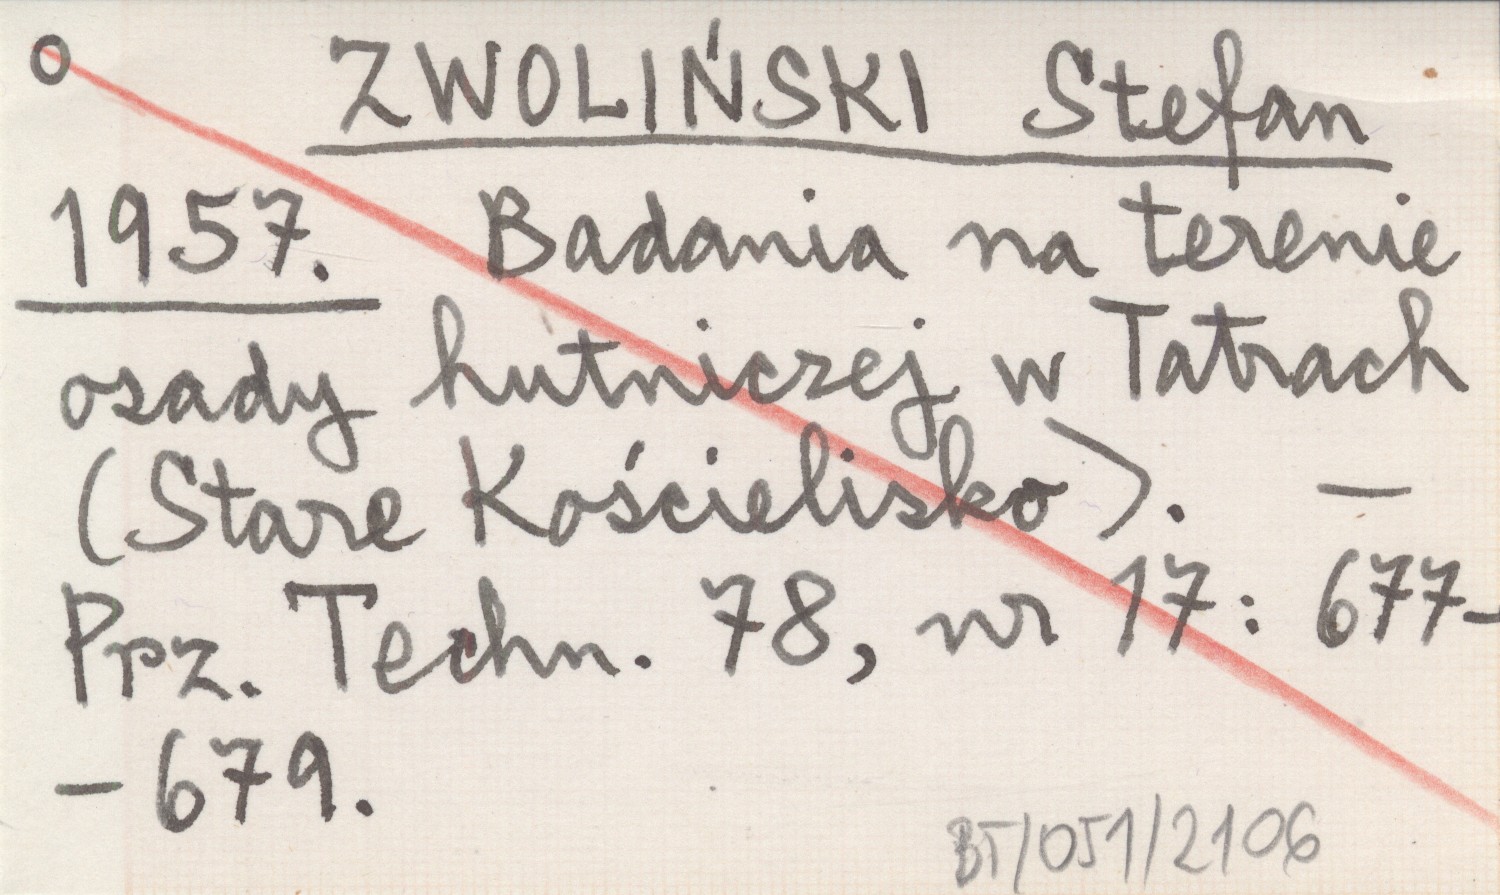 o ZWOLIŃSKI Stefan
1957. Badania na terenie
osady hutniczej w Tatrach
(Stare Kościelisko). —
Prz. Techn. 78, nr 17: 677-
-679.
BT/051/2106